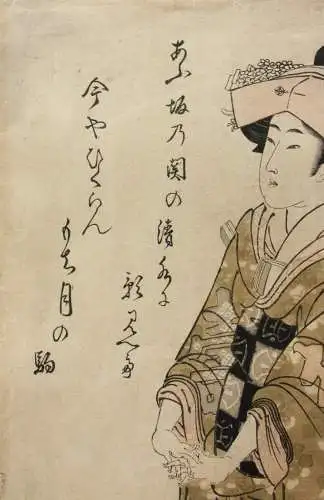 あふ坂乃関の清水に
影見へて
今やひくらん
もち月の
駒